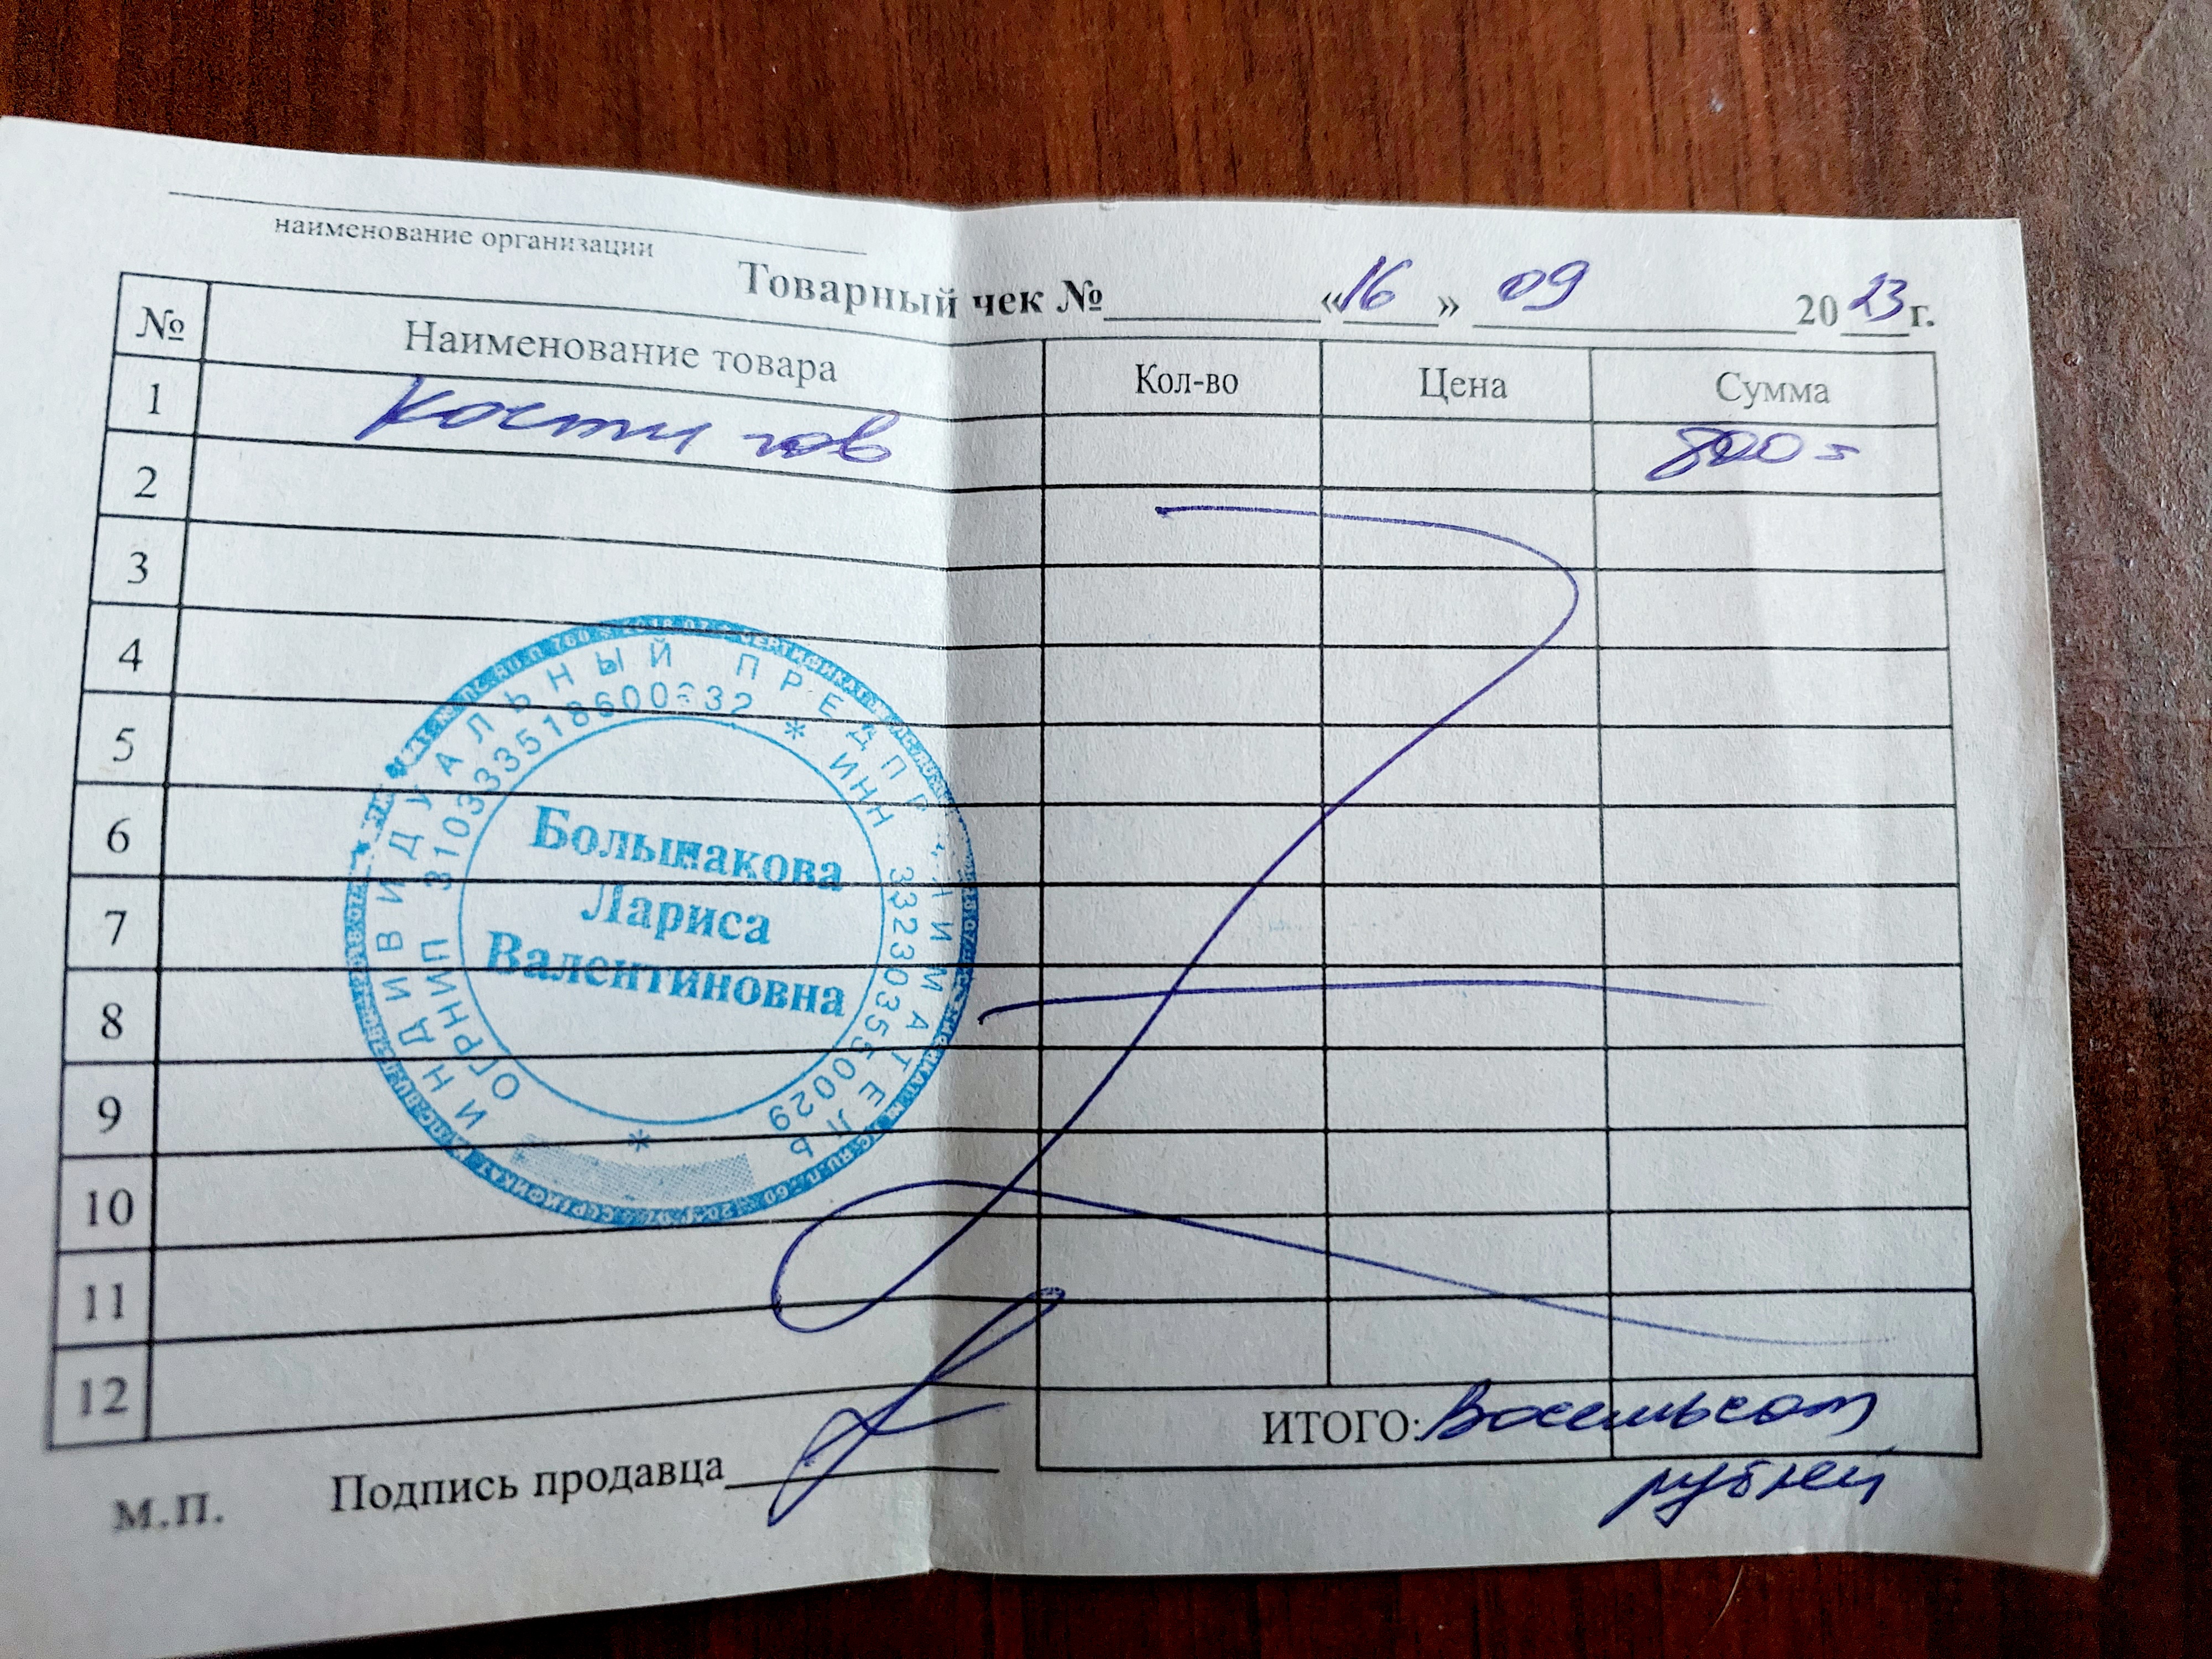 наименование организации
Товарный чек № «16» 09 2023 г.
№ Наименование товара Кол-во Цена Сумма
1 Кости гов 800=
2
3
4
5
6
7
8
9
10
11
12
ИНДИВИДУАЛЬНЫЙ ПРЕДПРИНИМАТЕЛЬ
ОГРНИП * ИНН 332303550029 *
Большакова
Лариса
Валентиновна
ИТОГО: Восемьсот
рублей
М.П. Подпись продавца